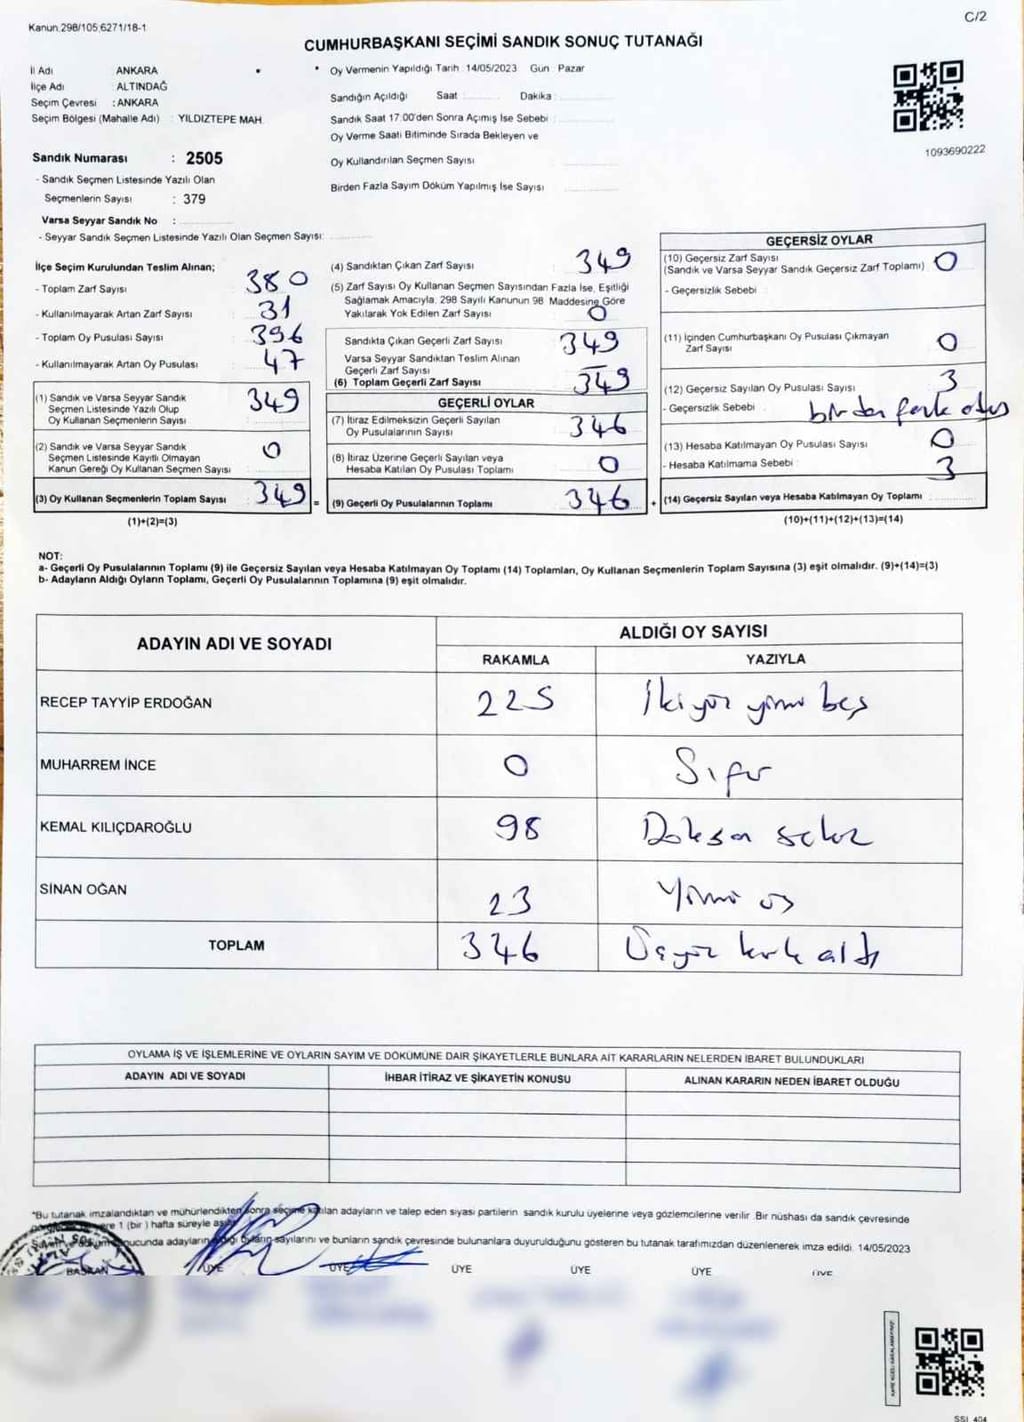 Kanun 298/105,6271/18-1
C/2
CUMHURBAŞKANI SEÇİMİ SANDIK SONUÇ TUTANAĞI
İl Adı ANKARA
İlçe Adı : ALTINDAĞ
Seçim Çevresi : ANKARA
Seçim Bölgesi (Mahalle Adı) : YILDIZTEPE MAH.
Sandık Numarası : 2505
- Sandık Seçmen Listesinde Yazılı Olan
Seçmenlerin Sayısı : 379
Varsa Seyyar Sandık No :
- Seyyar Sandık Seçmen Listesinde Yazılı Olan Seçmen Sayısı:
Oy Vermenin Yapıldığı Tarih :14/05/2023 Gün Pazar
Sandığın Açıldığı Saat : Dakika :
Sandık Saat 17:00'den Sonra Açımış İse Sebebi :
Oy Verme Saati Bitiminde Sırada Bekleyen ve
Oy Kullandırılan Seçmen Sayısı
Birden Fazla Sayım Döküm Yapılmış İse Sayısı
1093690222
İlçe Seçim Kurulundan Teslim Alınan;
- Toplam Zarf Sayısı 380
- Kullanılmayarak Artan Zarf Sayısı 31
- Toplam Oy Pusulası Sayısı 396
- Kullanılmayarak Artan Oy Pusulası 47
(1) Sandık ve Varsa Seyyar Sandık
Seçmen Listesinde Yazılı Olup
Oy Kullanan Seçmenlerin Sayısı 349
(2) Sandık ve Varsa Seyyar Sandık
Seçmen Listesinde Kayıtlı Olmayan
Kanun Gereği Oy Kullanan Seçmen Sayısı 0
(3) Oy Kullanan Seçmenlerin Toplam Sayısı 349 =
(1)+(2)=(3)
(4) Sandıktan Çıkan Zarf Sayısı 349
(5) Zarf Sayısı Oy Kullanan Seçmen Sayısından Fazla İse, Eşitliği
Sağlamak Amacıyla, 298 Sayılı Kanunun 98 Maddesine Göre
Yakılarak Yok Edilen Zarf Sayısı 0
Sandıkta Çıkan Geçerli Zarf Sayısı 349
Varsa Seyyar Sandıktan Teslim Alınan
Geçerli Zarf Sayısı —
(6) Toplam Geçerli Zarf Sayısı 349
GEÇERLİ OYLAR
(7) İtiraz Edilmeksizin Geçerli Sayılan
Oy Pusulalarının Sayısı 346
(8) İtiraz Üzerine Geçerli Sayılan veya
Hesaba Katılan Oy Pusulası Toplamı 0
(9) Geçerli Oy Pusulalarının Toplamı 346 +
GEÇERSİZ OYLAR
(10) Geçersiz Zarf Sayısı
(Sandık ve Varsa Seyyar Sandık Geçersiz Zarf Toplamı) 0
- Geçersizlik Sebebi :
(11) İçinden Cumhurbaşkanı Oy Pusulası Çıkmayan
Zarf Sayısı 0
(12) Geçersiz Sayılan Oy Pusulası Sayısı 3
- Geçersizlik Sebebi :
(13) Hesaba Katılmayan Oy Pusulası Sayısı 0
- Hesaba Katılmama Sebebi : 3
(14) Geçersiz Sayılan veya Hesaba Katılmayan Oy Toplamı
(10)+(11)+(12)+(13)=(14)
NOT:
a- Geçerli Oy Pusulalarının Toplamı (9) ile Geçersiz Sayılan veya Hesaba Katılmayan Oy Toplamı (14) Toplamları, Oy Kullanan Seçmenlerin Toplam Sayısına (3) eşit olmalıdır. (9)+(14)=(3)
b- Adayların Aldığı Oyların Toplamı, Geçerli Oy Pusulalarının Toplamına (9) eşit olmalıdır.
ADAYIN ADI VE SOYADI
ALDIĞI OY SAYISI
RAKAMLA YAZIYLA
RECEP TAYYİP ERDOĞAN 225 İkiyüz yirmi beş
MUHARREM İNCE 0 Sıfır
KEMAL KILIÇDAROĞLU 98 Doksan sekiz
SİNAN OĞAN 23 Yirmi üç
TOPLAM 346 Üçyüz kırk altı
OYLAMA İŞ VE İŞLEMLERİNE VE OYLARIN SAYIM VE DÖKÜMÜNE DAİR ŞİKAYETLERLE BUNLARA AİT KARARLARIN NELERDEN İBARET BULUNDUKLARI
ADAYIN ADI VE SOYADI İHBAR İTİRAZ VE ŞİKAYETİN KONUSU ALINAN KARARIN NEDEN İBARET OLDUĞU
"Bu tutanak imzalandıktan ve mühürlendikten sonra seçime katılan adayların ve talep eden siyasi partilerin sandık kurulu üyelerine veya gözlemcilerine verilir. Bir nüshası da sandık çevresinde
yere 1 (bir) hafta süreyle
adayların aldığı oyların sayılarını ve bunların sandık çevresinde bulunanlara duyurulduğunu gösteren bu tutanak tarafımızdan düzenlenerek imza edildi. 14/05/2023
BAŞKAN ÜYE ÜYE ÜYE ÜYE ÜYE ÜYE
SSI 404